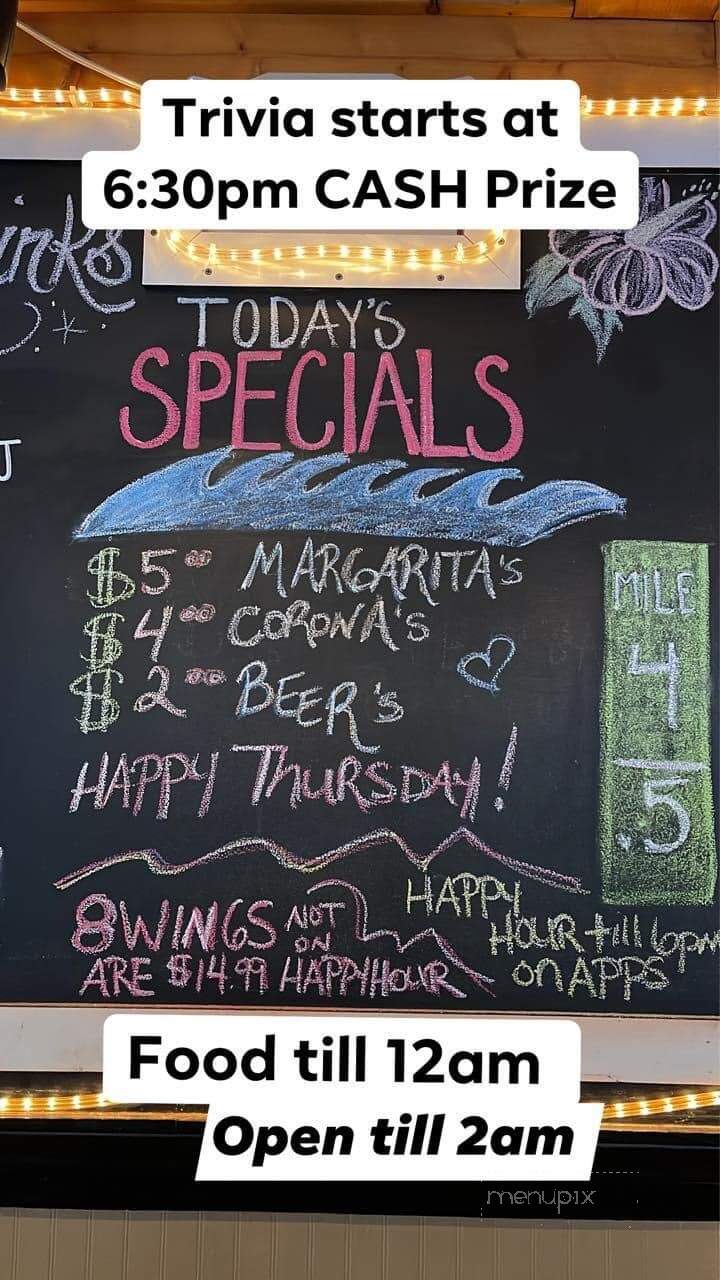 Trivia starts at
6:30pm CASH Prize
TODAY'S
SPECIALS
$5.00 MARGARITA'S
$4.00 CORONA'S
$2.00 BEER'S
HAPPY THURSDAY!
MILE
4
.5
8 WINGS NOT ON
ARE $14.99 HAPPY HOUR
HAPPY
HOUR till 6pm
on APPS
Food till 12am
Open till 2am
menupix